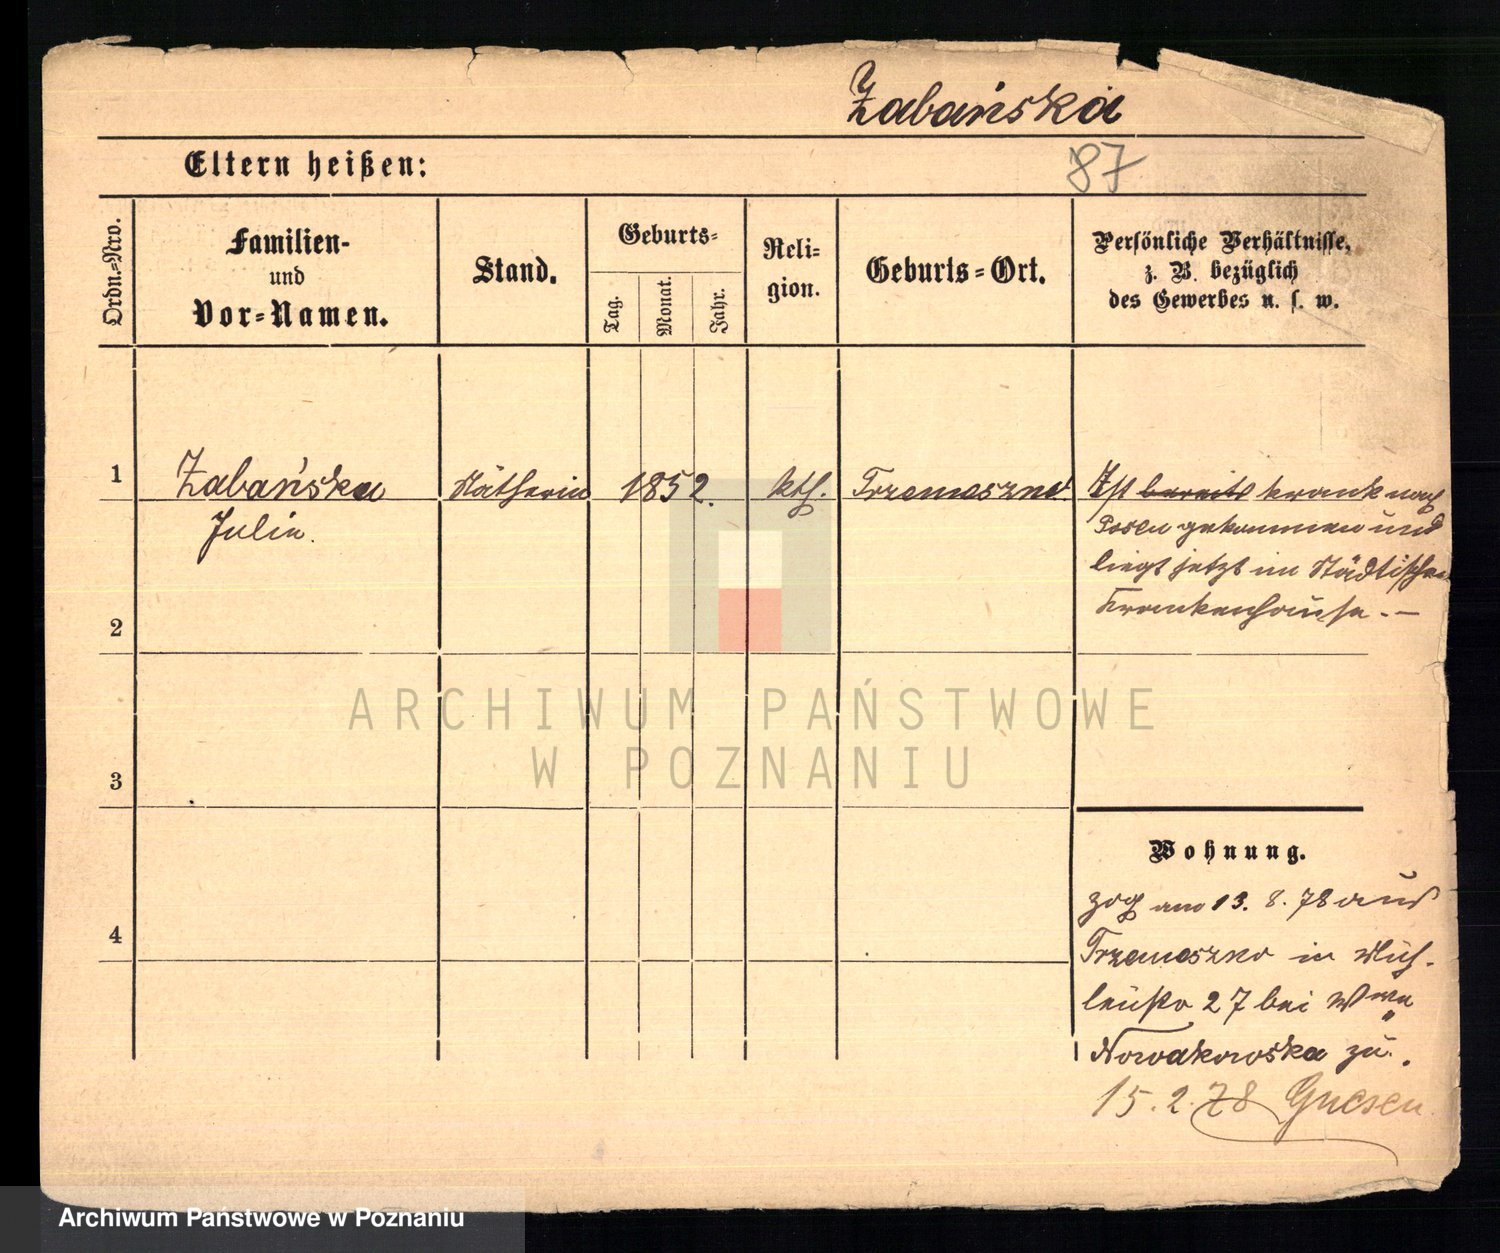 Żabańska
Eltern heißen:
87
Ordn.-Nro.
Familien-
und
Vor-Namen.
Stand.
Geburts-
Tag.
Monat.
Jahr.
Reli-
gion.
Geburts-Ort.
Persönliche Verhältnisse,
z. B. bezüglich
des Gewerbes u. s. w.
1
Żabańska
Julie.
Nätherin
1852.
kth.
Trzemeszno.
Ist bereits krank nach
Posen gekommen und
liegt jetzt im Städtischen
Krankenhause. –
2
3
4
Wohnung.
zog am 13. 8. 78 aus
Trzemeszno in
27 bei Wwe
Nowakowska zu.
15. 2. 78 Gnesen.
ARCHIWUM PAŃSTWOWE
W POZNANIU
Archiwum Państwowe w Poznaniu